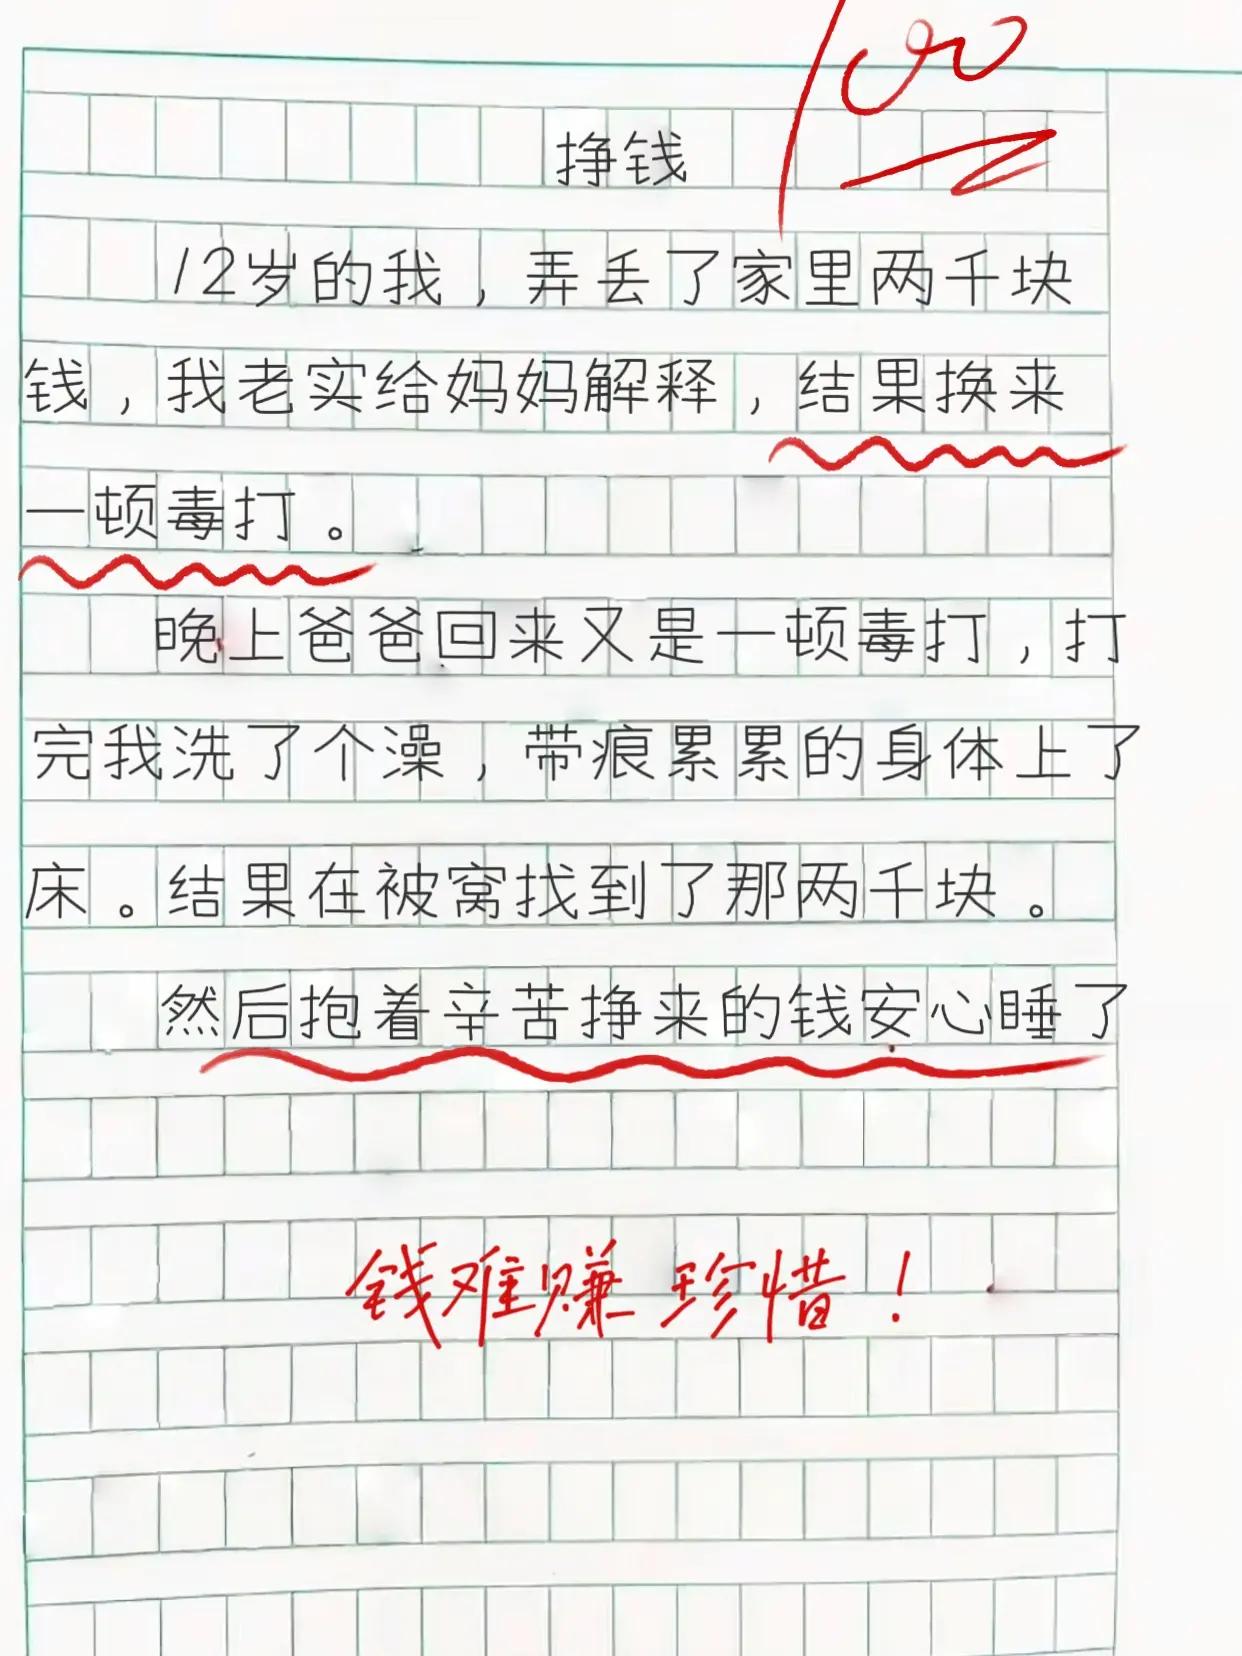 100
挣钱
12岁的我，弄丢了家里两千块
钱，我老实给妈妈解释，结果换来
一顿毒打。
晚上爸爸回来又是一顿毒打，打
完我洗了个澡，带痕累累的身体上了
床。结果在被窝找到了那两千块。
然后抱着辛苦挣来的钱安心睡了
钱难赚 珍惜！